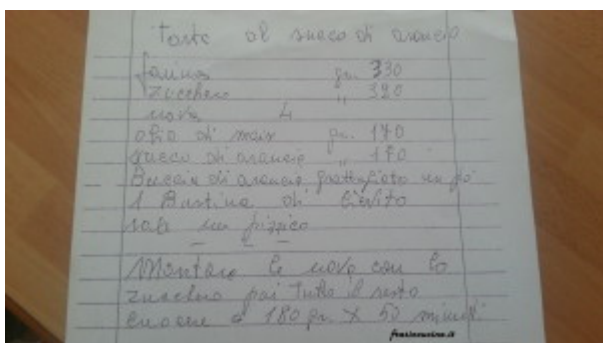 Torta al succo di arancia
farina gr. 330
zucchero " 320
uova 4
olio di mais gr. 170
succo di arancia " 170
Buccia di arancia grattugiata un pò
1 Bustina di lievito
sale un pizzico
Montare le uova con lo
zucchero poi tutto il resto
cuocere a 180 gr. x 50 minuti
frasiecucina.it